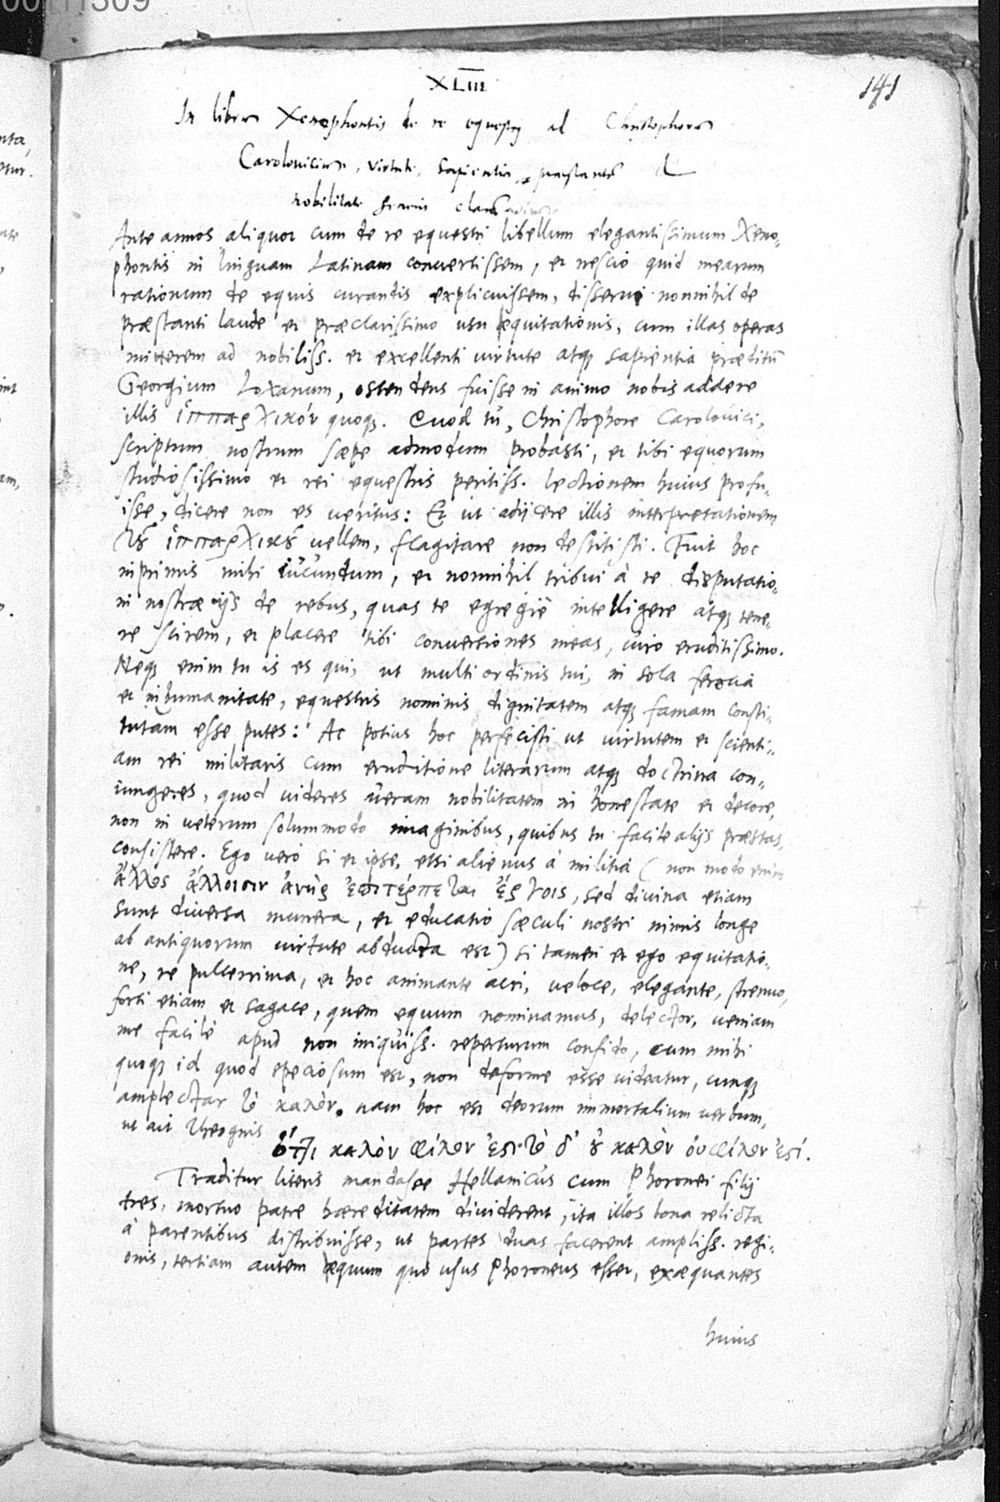 XLIII
141
In librum Xenophontis de re equestri ad Christophorum
Carolouicium, virtute, sapientia, praestantem &
nobilitate generis clarum
Ante annos aliquot cum de re equestri libellum elegantissimum Xeno„
phontis in linguam Latinam conuertissem, et nescio quid mearum
rationum de equis curandis explicuissem, disserui nonnihil de
præstanti laude et præclarissimo usu equitationis, cum illas operas
mitterem ad nobiliss. et excellenti uirtute atq; sapientia præditū
Georgium Loxanum, ostendens fuisse in animo nobis addere
illis ἱππαρχικόν quoq;. Quod tū, Christophore Carolouici,
scriptum nostrum sæpe admodum probasti, et tibi equorum
studiosissimo et rei equestris peritiss. lectionem huius profu„
isse, dicere non es ueritus: Et ut adijcere illis interpretationem
τȣ ἱππαρχικȣ uellem, flagitare non destitisti. Fuit hoc
inprimis mihi iucundum, et nonnihil tribui à te disputatio„
ni nostræ ijs de rebus, quas te egregiè intelligere atq; tene„
re scirem, et placere tibi conuersiones meas, uiro eruditissimo.
Neq; enim tu is es qui, ut multi ordinis tui, in sola ferocia
et inhumanitate, equestris nominis dignitatem atq; famam consti„
tutam esse putes: Ac potius hoc perfecisti ut uirtutem et scienti„
am rei militaris cum eruditione literarum atq; doctrina con„
iungeres, quod uideres ueram nobilitatem in honestate et decore,
non in ueterum solummodo imaginibus, quibus tu facile alijs præstas,
consistere. Ego uerò si et ipse, etsi alienus à militia (non modo enim
ἄλλος ἄλλοισιν ἀνὴρ ἐπιτέρπεται ἔργοις, sed diuina etiam
sunt diuersa munera, et educatio sæculi nostri nimis longe
ab antiquorum uirtute abducta est) si tamen et ego equitatio„
ne, re pulcerrima, et hoc animante acri, ueloce, elegante, strenuo,
forti etiam et sagace, quem equum nominamus, delector, ueniam
me facilè apud non iniquiss. reperturum confido, cum mihi
quoq; id quod speciosum est, non deforme esse uideatur, cumq;
amplectar τὸ καλόν. nam hoc est deorum immortalium uerbum,
ut ait Theognis
ὅττι καλὸν φίλον ἐστὶ τὸ δ' ȣ καλὸν οὐ φίλον ἐστί.
Traditur literis mandasse Hellanicus cum Phoronei filij
tres, mortuo patre hæreditatem diuiderent, ita illos bona relicta
à parentibus distribuisse, ut partes duas facerent ampliss. regi„
onis, tertiam autem equum quo usus Phoroneus esset, exæquantes
huius